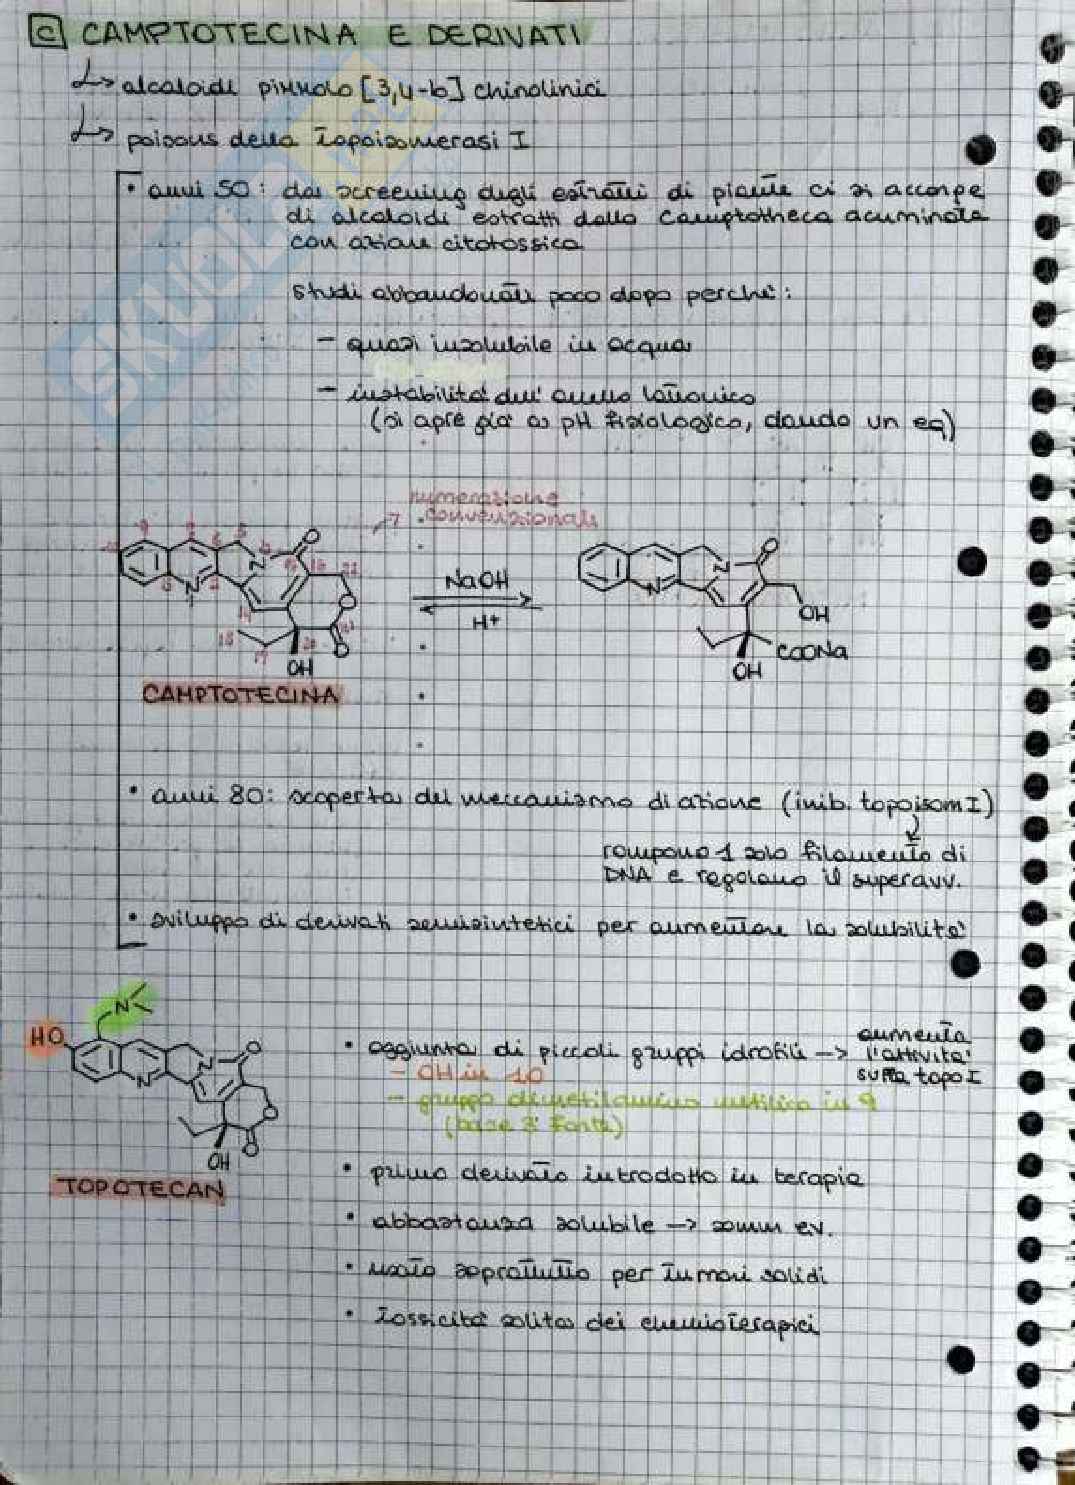 C CAMPTOTECINA E DERIVATI
↳ alcaloidi pirrolo [3,4-b] chinolinici
↳ poisons della topoisomerasi I
• anni 50: da screening degli estratti di piante ci si accorge
di alcaloidi estratti dalla Camptotheca acuminata
con azione citotossica
studi abbandonati poco dopo perchè:
- quasi insolubile in acqua
- instabilità dell'anello lattonico
(si apre già a pH fisiologico, dando un eq)
numerazione
convenzionale
NaOH
H+
OH
COONa
OH
OH
CAMPTOTECINA
• anni 80: scoperta del meccanismo di azione (inib. topoisom I)
rompono 1 solo filamento di
DNA e regolano il superavv.
• sviluppo di derivati semisintetici per aumentare la solubilità
HO
N
OH
TOPOTECAN
• aggiunta di piccoli gruppi idrofili → aumenta
l'attività
sulla topo I
- OH in 10
- gruppo dimetilamino metilico in 9
(base 3ª forte)
• primo derivato introdotto in terapia
• abbastanza solubile → somm e.v.
• usato soprattutto per tumori solidi
• tossicità solita dei chemioterapici
SKUOLA.NET